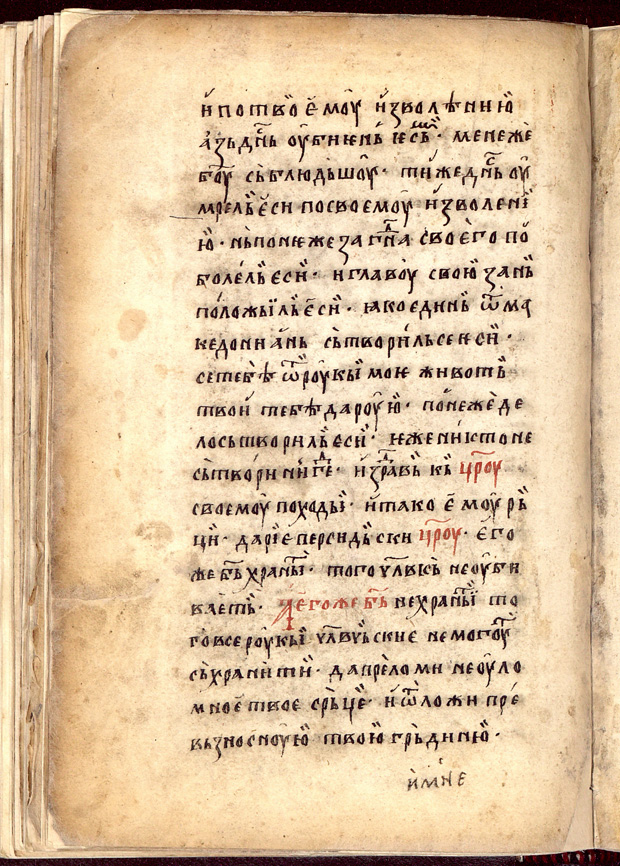 и по твоемоу изволѣнию
азь дн҃ь оубиѥнь ѥсмь · мене же
б҃оу сьблюдьшоу · ти же дн҃ь оу
мрель еси по своемоу изволени
ю · нь понеже за гд҃на своего по
болель еси · и главоу свою зань
положиль еси · ꙗко единь ѿ ма
кедонианнь сьтвориль се ѥси ·
се тебѣ ѿ роукы моѥ животь
твои тебѣ дароую · понеже дѣ
ло сьтвориль еси · иже никто не
сьтвори нигде · и здравь кь ц҃роу
своемоу походы · и тако емоу рь
ци · дарїе персидьски ц҃роу · его
же б҃ь храны · того чл҃вкь не оуби
ваеть · А его же б҃ь не храны то
го все роукы чл҃вчьскые не могоуть
сьхранити · да преломи неоуло
мное твое срьце · и ѿложи прѣ
вьзносноую твою грьдиню ·
и мне